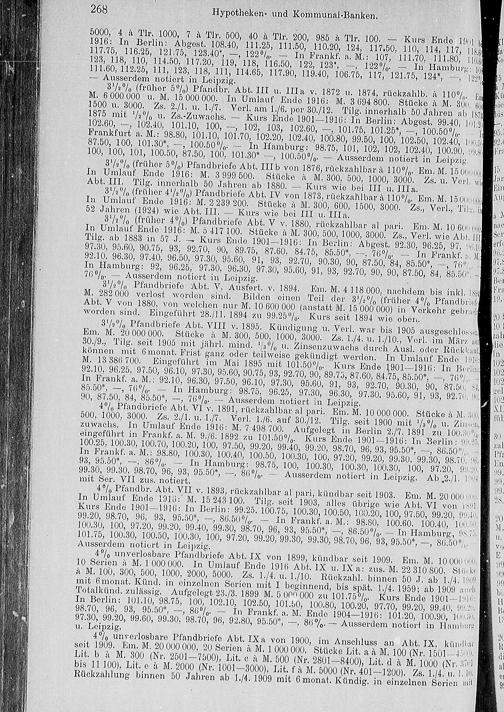 268
Hypotheken- und Kommunal-Banken.
5000, 4 à Tlr. 1000, 7 à Tlr. 500, 40 à Tlr. 200, 985 à Tlr. 100. — Kurs Ende 1901
1916: In Berlin: Abgest. 108.40, 111.25, 111.50, 110.20, 124, 117.50, 110, 114, 117,
117.75, 116.25, 121.75, 123.40*, —, 122%. — In Frankf. a. M.: 107, 111.70, 111.80,
123, 118, 110, 114.50, 117.20, 119, 118, 116.50, 122, 123*, —, 122%. — In Hamburg:
111.60, 112.25, 111, 123, 118, 111, 114.65, 117.90, 119.40, 106.75, 117, 121.75, 124*, —,
— Ausserdem notiert in Leipzig.
3½% (früher 5%) Pfandbr. Abt. III u. IIIa v. 1872 u. 1874, rückzahlb. à 110%.
M. 6 000 000 u. M. 15 000 000. In Umlauf Ende 1916: M. 3 694 800. Stücke à M. 300,
1500 u. 3000. Zs. 2./1. u. 1./7. Verl. am 1./6. per 30./12. Tilg. innerhalb 50 Jahren ab
1875 mit ½% u. Zs.-Zuwachs. — Kurs Ende 1901—1916: In Berlin: Abgest. 99.40,
102.60, —, 102.40, 101.10, 100, —, 102, 103, 102.60, —, 101.75, 101.25*, —, 100.50%. —
Frankfurt a. M.: 98.80, 101.10, 101.70, 102.20, 102.40, 100.80, 99.50, 100, 102.50, 102.40,
87.50, 100, 101.30*, —, 100.50%. — In Hamburg: 98.75, 101, 102, 102, 102.40, 100.90,
100, 100, 101, 100.50, 87.50, 100, 101.30* —, 100.50%. — Ausserdem notiert in Leipzig.
3½% (früher 5%) Pfandbriefe Abt. IIIb von 1876, rückzahlbar à 110%. Em. M. 15
In Umlauf Ende 1916: M. 3 999 500. Stücke à M. 300, 500, 1000, 3000. Zs. u. Verl.
Abt. III. Tilg. innerhalb 50 Jahren ab 1880. — Kurs wie bei III u. IIIa.
3½% (früher 4½%) Pfandbriefe Abt. IV von 1873, rückzahlbar à 110%. Em. M.
In Umlauf Ende 1916: M. 2 239 200. Stücke à M. 300, 600, 1500, 3000. Zs., Verl., Tilg.
52 Jahren (1924) wie Abt. III. — Kurs wie bei III u. IIIa.
3½% (früher 4%) Pfandbriefe Abt. V v. 1880, rückzahlbar al pari. Em. M. 10 600
In Umlauf Ende 1916: M. 5 417 100. Stücke à M. 300, 500, 1000, 3000. Zs., Verl. wie Abt.
Tilg. ab 1883 in 57 J. — Kurs Ende 1901—1916: In Berlin: Abgest. 92.30, 96.25, 97,
97.30, 95.60, 90.75, 93, 92.70, 90, 89.75, 87.60, 84.75, 85.50*, —, 76%. — In Frankf. a.
92.10, 96.30, 97.40, 96.50, 97.30, 95.60, 91, 93, 92.70, 90.30, 90, 87.50, 84, 85.50*, —, 76%.
In Hamburg: 92, 96.25, 97.30, 96.30, 97.30, 95.60, 91, 93, 92.70, 90, 90, 87.50, 84, 85.50*,
76%. — Ausserdem notiert in Leipzig.
3½% Pfandbriefe Abt. V, Ausfert. v. 1894. Em. M 4 118 000, nachdem bis inkl.
M. 282 000 verlost worden sind. Bilden einen Teil der 3½% (früher 4%) Pfandbriefe
Abt. V von 1880, von welchen nur M. 10 600 000 (anstatt M. 15 000 000) in Verkehr
worden sind. Eingeführt 28./11. 1894 zu 99.25%. Kurs seit 1894 wie oben.
3½% Pfandbriefe Abt. VIII v. 1895. Kündigung u. Verl. war bis 1905 ausgeschlossen.
Em. M. 20 000 000. Stücke à M. 300, 500, 1000, 3000. Zs. 1./4. u. 1./10. Verl. im März
30./9., Tilg. seit 1905 mit jährl. mind. ½% u. Zinsenzuwachs durch Ausl. oder Rückkauf,
können mit 6 monat. Frist ganz oder teilweise gekündigt werden. In Umlauf Ende
M. 13 386 700. Eingeführt im Mai 1895 mit 101.50%. Kurs Ende 1901—1916: In Berlin:
92.10, 96.25, 97.50, 96.10, 97.10, 97.30, 95.60, 90.75, 93, 92.70, 90, 89.75, 87.60, 84.75, 85.50*, —, 76%.
In Frankf. a. M.: 92.10, 96.30, 97.50, 96.10, 97.30, 95.60, 91, 93, 92.70, 90.30, 90, 87.50,
85.50*, —, 76%. — In Hamburg: 98.75, 96.25, 97.30, 96.30, 97.30, 95.60, 91, 93, 92.70,
90, 87.50, 84, 85.50*, —, 76%. — Ausserdem notiert in Leipzig.
4% Pfandbriefe Abt. VI v. 1891, rückzahlbar al pari. Em. M. 10 000 000. Stücke à M.
500, 1000, 3000. Zs. 2./1. u. 1./7. Verl. 1./6. auf 30./12. Tilg. seit 1900 mit ½% u. Zinsen-
zuwachs. In Umlauf Ende 1916: M. 7 498 700. Aufgelegt in Berlin 2./7. 1891 zu 100.30%,
eingeführt in Frankf. a. M. 9./6. 1892 zu 101.50%. Kurs Ende 1901—1916: In Berlin:
100.25, 100.30, 100.70, 100.20, 100, 97.50, 99.20, 99.40, 99.20, 98.70, 96, 93, 95.50*, —, 86.50%.
In Frankf. a. M.: 98.80, 100.30, 100.40, 100.50, 100.30, 100, 97.20, 99.20, 99.30, 99.30, 98.70, 96,
93, 95.50*, —, 86%. — In Hamburg: 98.75, 100, 100.30, 100.30, 100.30, 100, 97.20,
99.30, 99.30, 98.70, 96, 93, 95.50*, —, 86%. — Ausserdem notiert in Leipzig. Ab 2./1.
mit Ser. VII zus. notiert.
4% Pfandbr. Abt. VII v. 1893, rückzahlbar al pari, kündbar seit 1903. Em. M. 20 000
In Umlauf Ende 1916: M. 15 243 100. Tilg. seit 1903, alles übrige wie Abt. VI von 1891.
Kurs Ende 1901—1916: In Berlin: 99.25, 100.75, 100.30, 100.50, 100.20, 100, 97.50, 99.20,
99.20, 98.70, 96, 93, 95.50*, —, 86.50%. — In Frankf. a. M.: 98.80, 100.60, 100.40,
100.30, 100, 97.20, 99.20, 99.40, 99.30, 98.70, 96, 93, 95.50*, —, 86%. — In Hamburg,
101.75, 100.30, 100.50, 100.30, 100, 97.20, 99.20, 99.30, 99.30, 98.70, 96, 93, 95.50*, —, 86.50%.
Ausserdem notiert in Leipzig.
4% unverlosbare Pfandbriefe Abt. IX von 1899, kündbar seit 1909. Em. M. 10 000
10 Serien à M. 1 000 000. In Umlauf Ende 1916 Abt. IX u. IXa: zus. M. 22 310 800.
à M. 100, 300, 500, 1000, 2000, 5000. Zs. 1./4. u. 1./10. Rückzahl. binnen 50 J. ab 1./4. 1909
mit 6 monat. Künd. in einzelnen Serien mit I beginnend, bis spät. 1./4. 1959; ab 1909 auch
Totalkünd. zulässig. Aufgelegt 23./3. 1899 M. 5 000 000 zu 101.75%. Kurs Ende 1901—
In Berlin: 101.10, 98.75, 100, 102.10, 102.50, 101.50, 100.80, 100.20, 97.70, 99.20, 99.40,
98.70, 96, 93, 95.50*, —, 86%. — In Frankf. a. M. Ende 1904—1916: 101.20, 100.90,
97.30, 99.20, 99.60, 99.30, 98.70, 96, 92.80, 95.50*, —, 86%. — Ausserdem notiert in Hamburg
u. Leipzig.
4% unverlosbare Pfandbriefe Abt. IXa von 1900, im Anschluss an Abt. IX, kündbar
seit 1909. Em. M. 20 000 000, 20 Serien à M. 1 000 000. Stücke Lit. a à M. 100 (Nr. 1501—
Lit. b à M. 300 (Nr. 2501—7500), Lit. c à M. 500 (Nr. 2801—8400), Lit. d à M. 1000 (Nr.
bis 11 100), Lit. e à M. 2000 (Nr. 1001—3000), Lit. f à M. 5000 (Nr. 401—1200). Zs. 1./4. u. 1./10.
Rückzahlung binnen 50 Jahren ab 1./4. 1909 mit 6 monat. Kündig. in einzelnen Serien mit